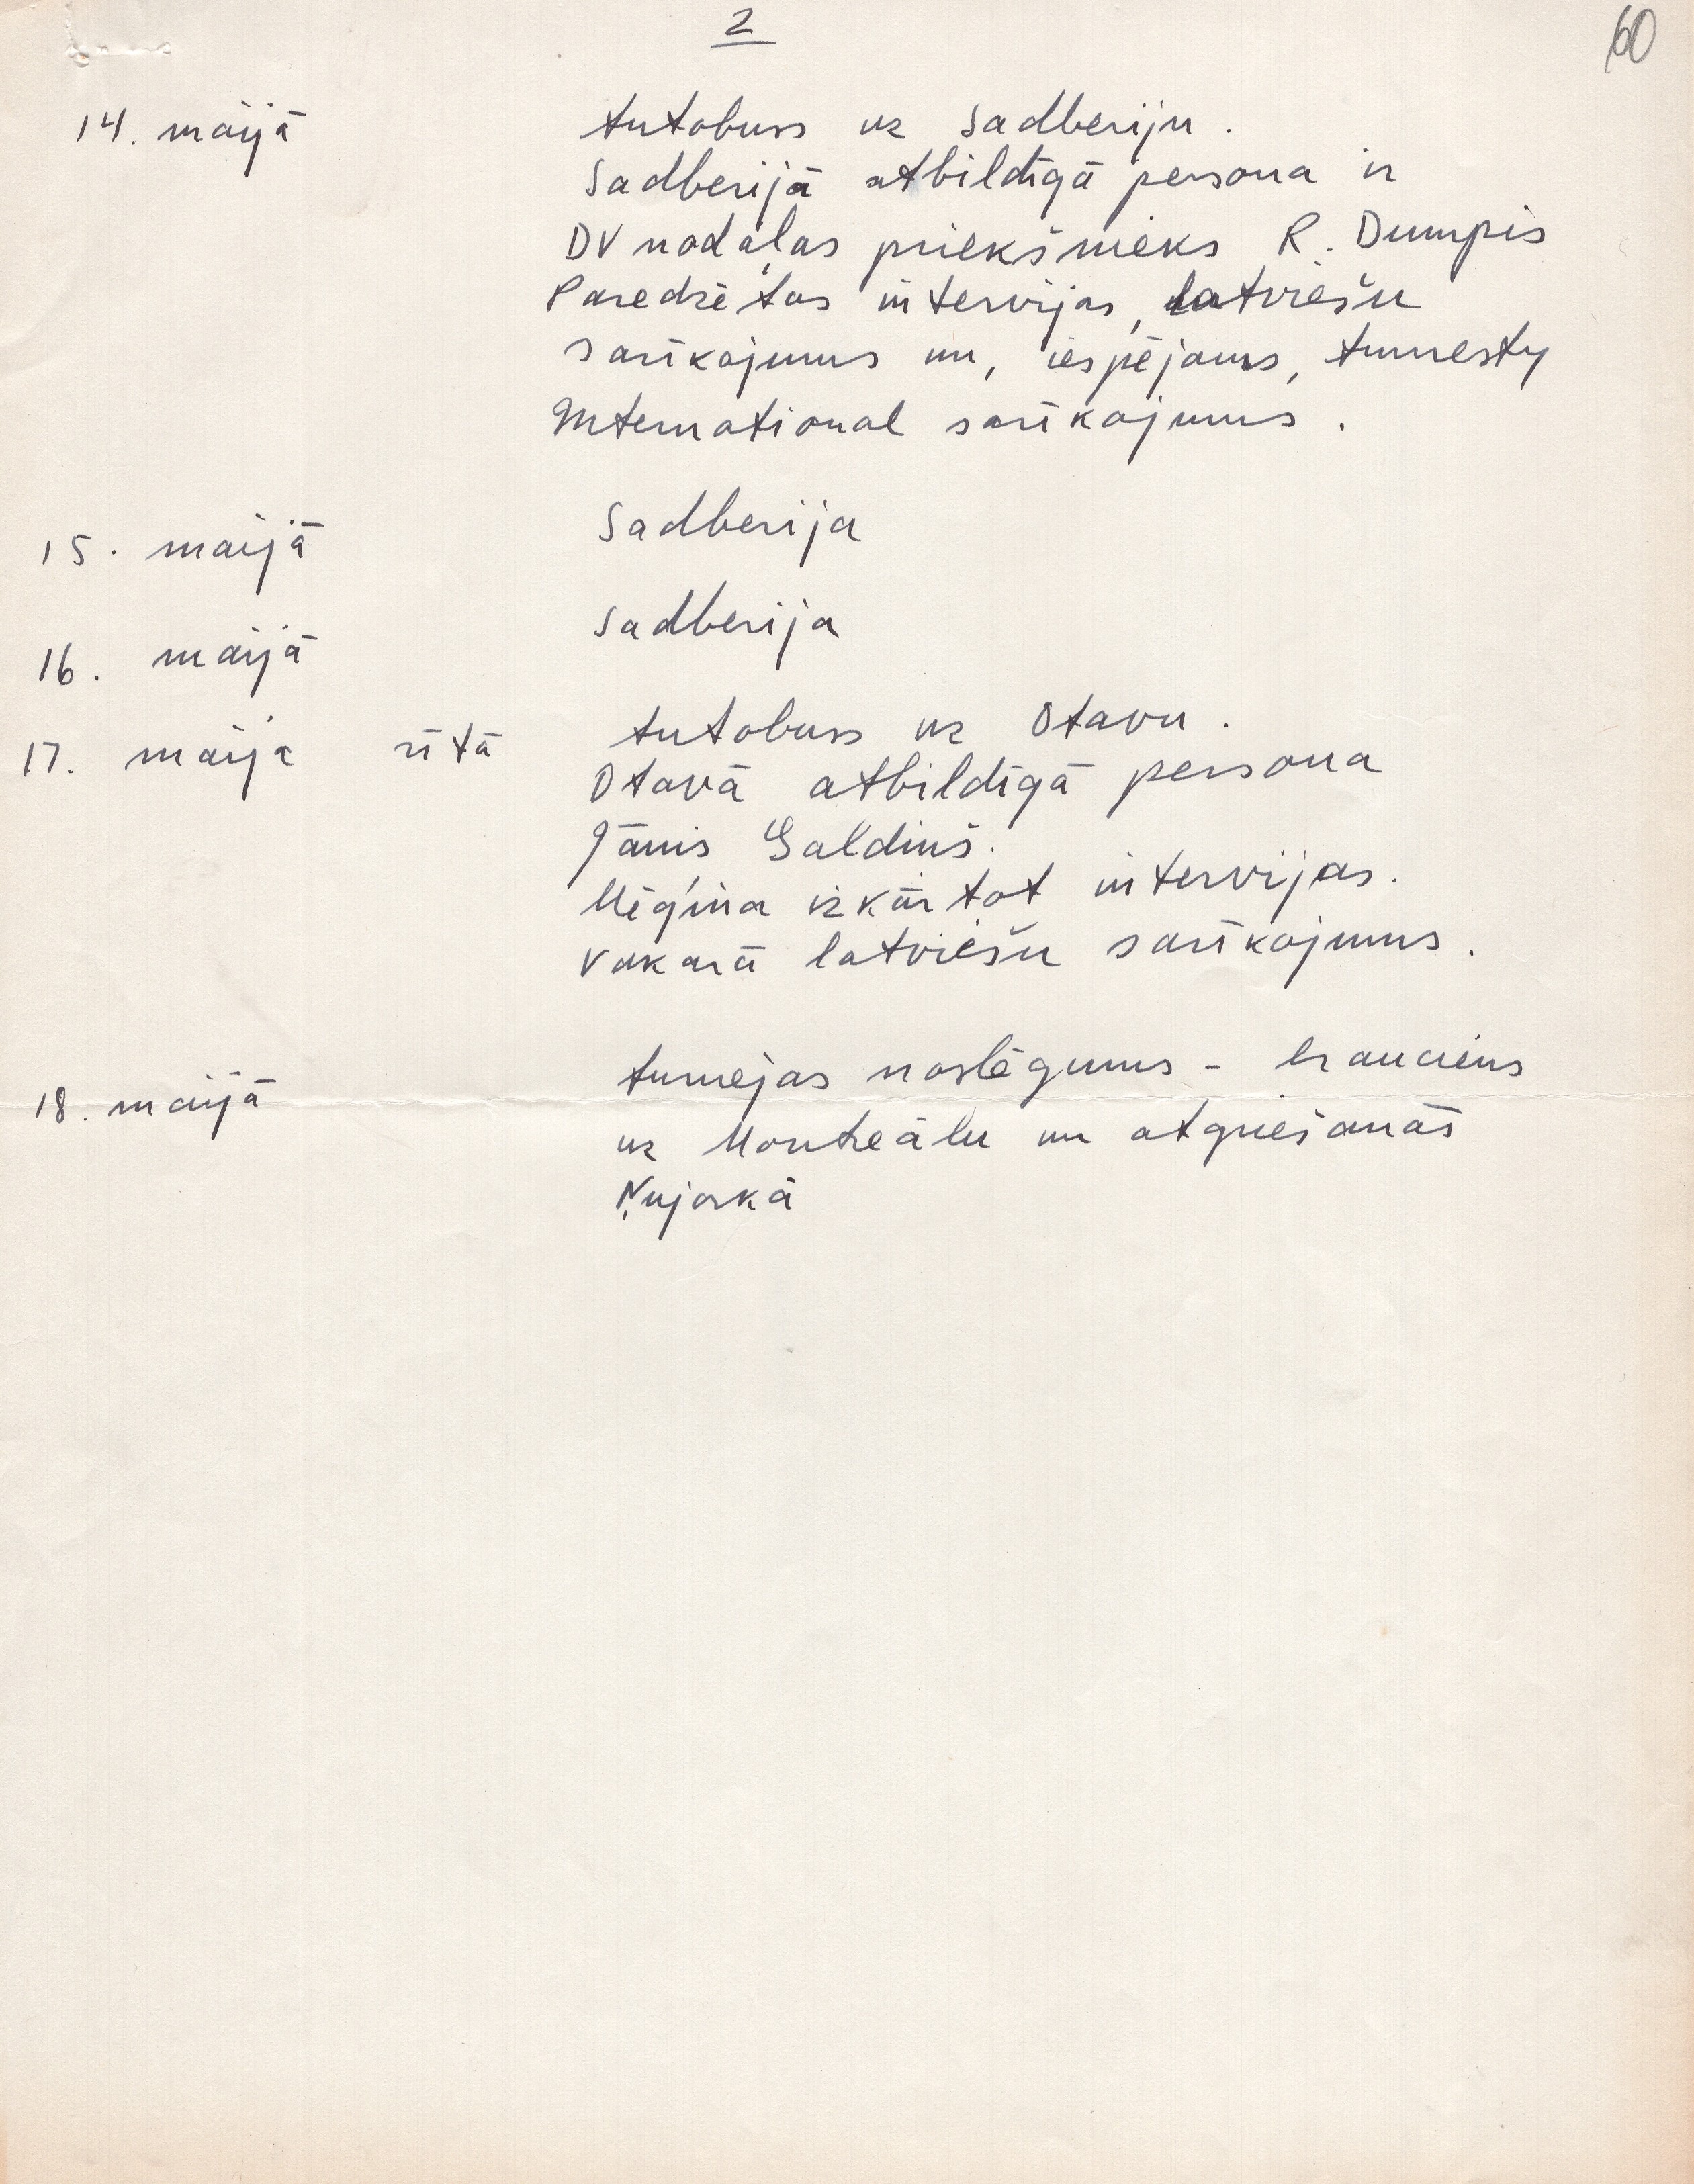 2
60
14. maijā Autobuss uz Sadberiju.
Sadberijā atbildīgā persona ir
DV nodaļas priekšnieks R. Dumpis
Paredzētas intervijas, latviešu
sarīkojums un, iespējams, Amnesty
International sarīkojums.
15. maijā Sadberija
16. maijā Sadberija
17. maija rītā Autobuss uz Otavu.
Otavā atbildīgā persona
Jānis Galdiņš.
Mēģina izkārtot intervijas.
Vakarā latviešu sarīkojums.
18. maijā turnejas noslēgums - brauciens
uz Montreālu un atgriešanās
Ņujorkā